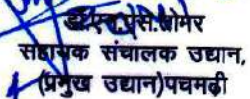 डॉ.एन.एस.तोमर
सहायक संचालक उद्यान,
(प्रमुख उद्यान)पचमढ़ी